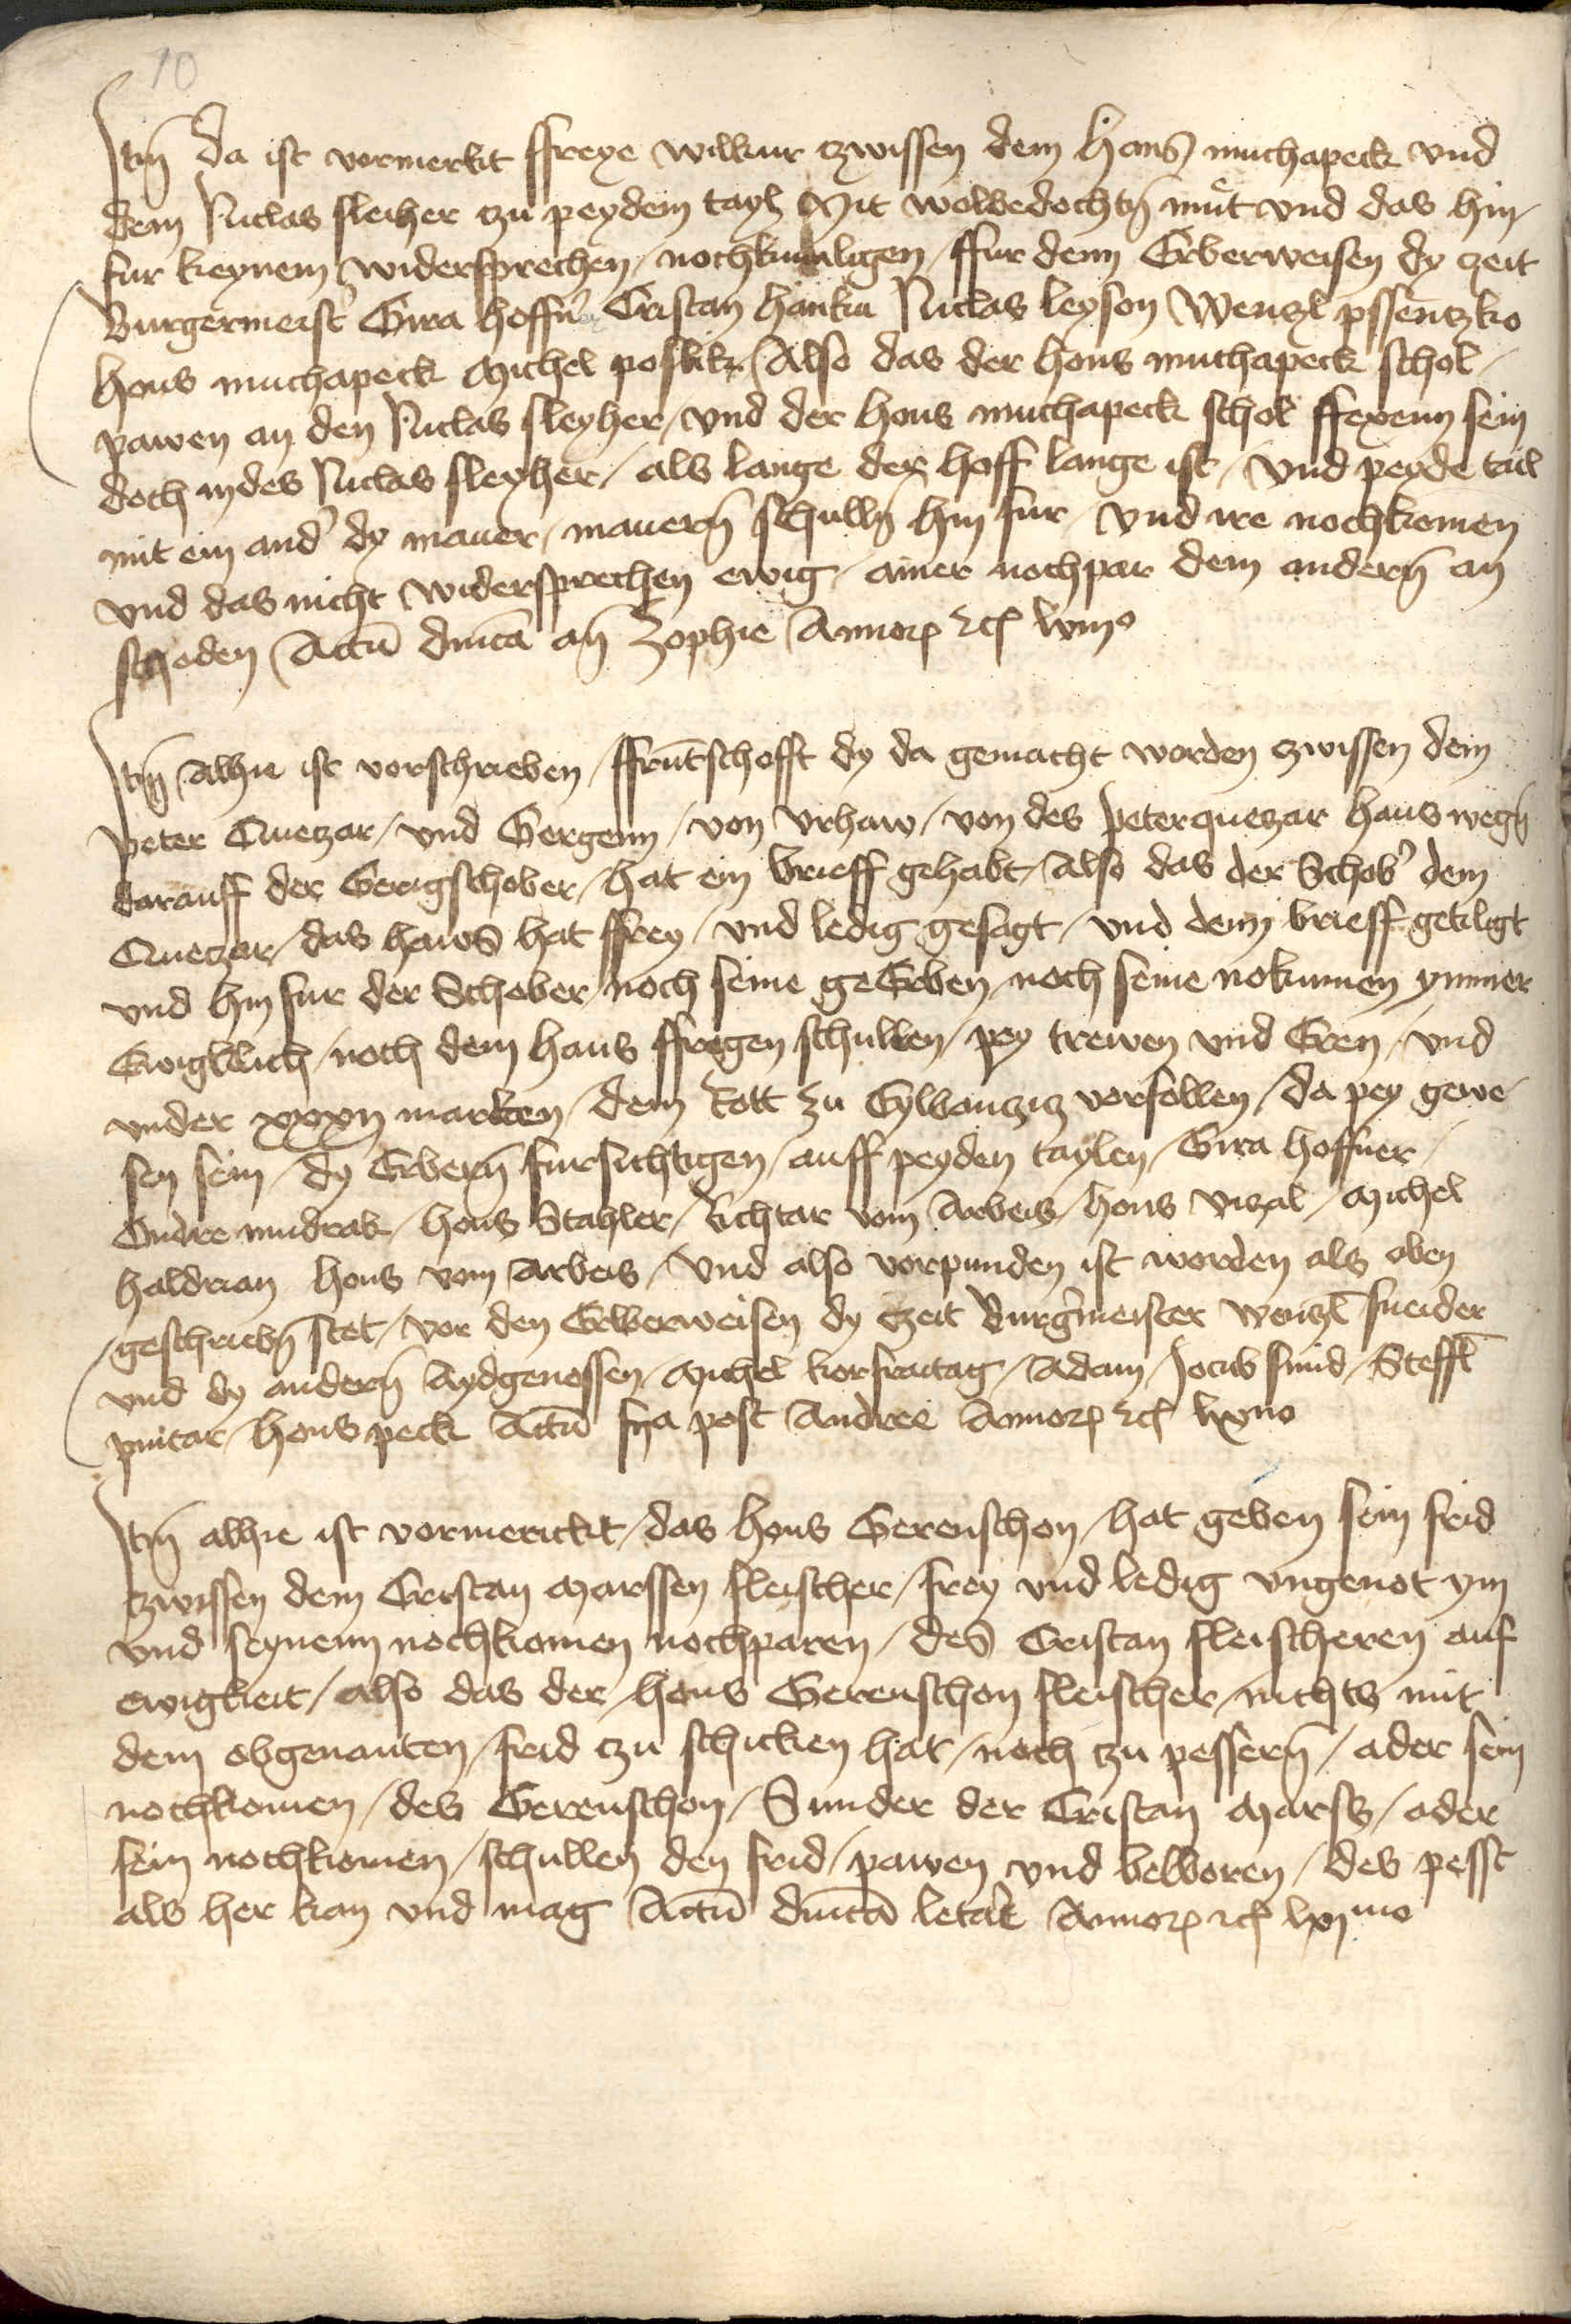 10
Itm̄ da ist vormerkt ffreye wilkur czwissen dem Hans muchapeck vnd
dem Niclas sleiher czu peydem tayl Mit wolbedochtn̄ mut vnd das hin
fur keynem widersprechen / nochkumligen / ffur denn Erberweisen dy czeit
Burgermeist' Gira hoffn' Cristan hanku Niclas leyson Wenczl pssenczko
hans muchapeck Michel poslik / Also das der hons muchapeck schol
pawen an den Niclas sleyher / vnd der hons muchapeck schol ffexenn sein
doch in des Niclas sleyher / als lange der hoff lange ist / vnd peyde tail
mit ein and' dy mauer / mauern̄ schulln̄ hin fur / vnd ire nochkomen
vnd das nicht widersprechen ewig / ainer nochpar dem andern̄ an
schoden Actū dm̄ca an̄ Zophie Annorꝝ ⁊cꝭ lviiiᵒ
Itm̄ Alhie ist vorschrieben / ffrūtschofft dy da gemacht worden czwissen dem
Peter Quetzar / vnd Gergenn / von Vrhaw / von des peter quetzar haus wegn̄
darauff der Gerigschober / hat ein brieff gehabt / Also das der Schob' dem
Quetzar / das haws hat ffrey / vnd ledig gesagt / vnd denn brieff getiligt
vnd hin fur der Schober / noch seine geErben / noch seine nokumen ymmer
Ewigklich / noch dem haus ffregen schullen / pey trewen vnd Eren / vnd
vnder xxxii marken / dem kott zu Eylbanczicz vorfollen / da pey gewe
sen sein / dy Erbern̄ fursichtigen / auff peyden taylen / Gira hoffner /
Ondre mudrak / hons Stahler / Richtar vom Arbeis / hons vizal / Michel
haldrian hons vom Arbeis / vnd also vorpunden ist worden als oben
geschriebn̄ stet / vor den Erberweisen dy czeit Burg'meister wenczl̄ sneider
vnd dy andern̄ Aydgenossen / Michel korfraitag / Adam / Jocub smid / Steffl̄
pintar / hons peck Actū fiia post Andree Annorꝝ ⁊cꝭ lxmo
Itm̄ alhie ist vormerickt / das hons Gerenschon / hat geben sein frid
czwissen dem Cristan Marssen fleischer / frey vnd ledig vngenot ym
vnd seynenn nochkomen nochparen / des Cristan fleischeren auf
ewigkeit / also das der hons Gerenschon fleischer / nichts mit
dem obgenanten / frid czu schicken hat / noch czu pessern̄ / ader sein
nochkomen / des Gerenschon / Sunder der Cristan Marss / ader
sein nochkomen / schullen den frid / pawen vnd bewboren / des pesst
als her kan vnd mag Actū dm̄ca letar̄e Annorꝝ ⁊cꝭ lximo